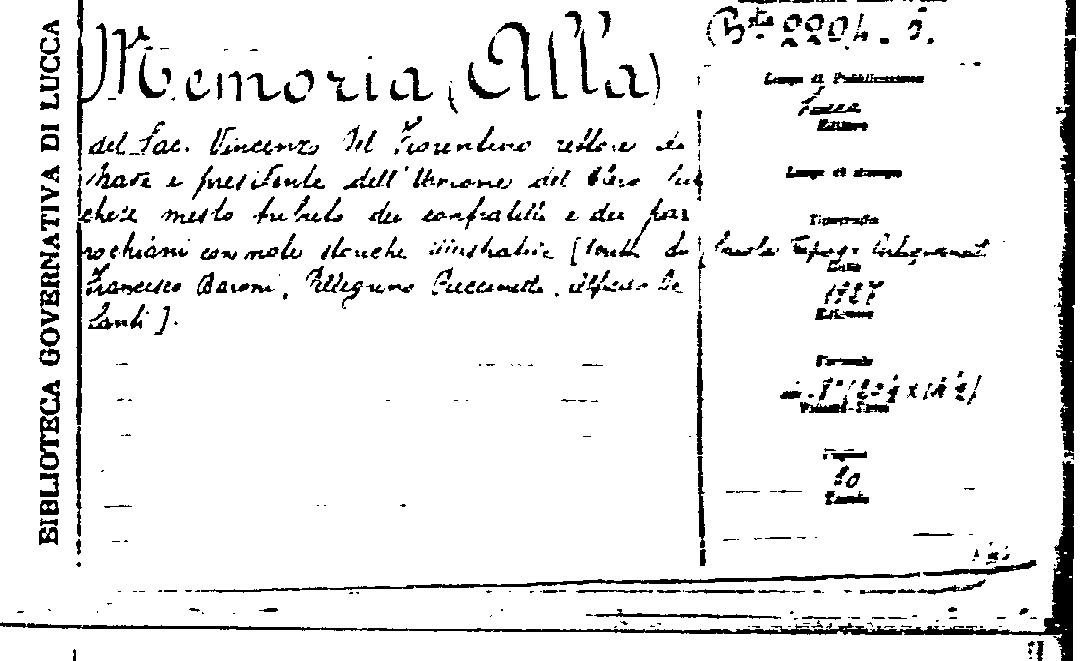 BIBLIOTECA GOVERNATIVA DI LUCCA
Memoria (Alla)
del Sac. Vincenzo Del Fiorentino rettore di
e presidente dell'Unione del Clero luc
chese mesto tributo dei confratelli e dei par
rochiani con note storiche illustrative [scritti di
Francesco Baroni, Pellegrino Puccinelli, Alfonso De
Santi].
Bta 2204.5.
Luogo di Pubblicazione
Lucca
Editore
Luogo di stampa
Tipografia
Scuola Tipogr. Artigianelli
Data
1927
Edizione
Formato
in-8° (20½ x 14½)
Volumi-Tomi
Pagine
Tavole